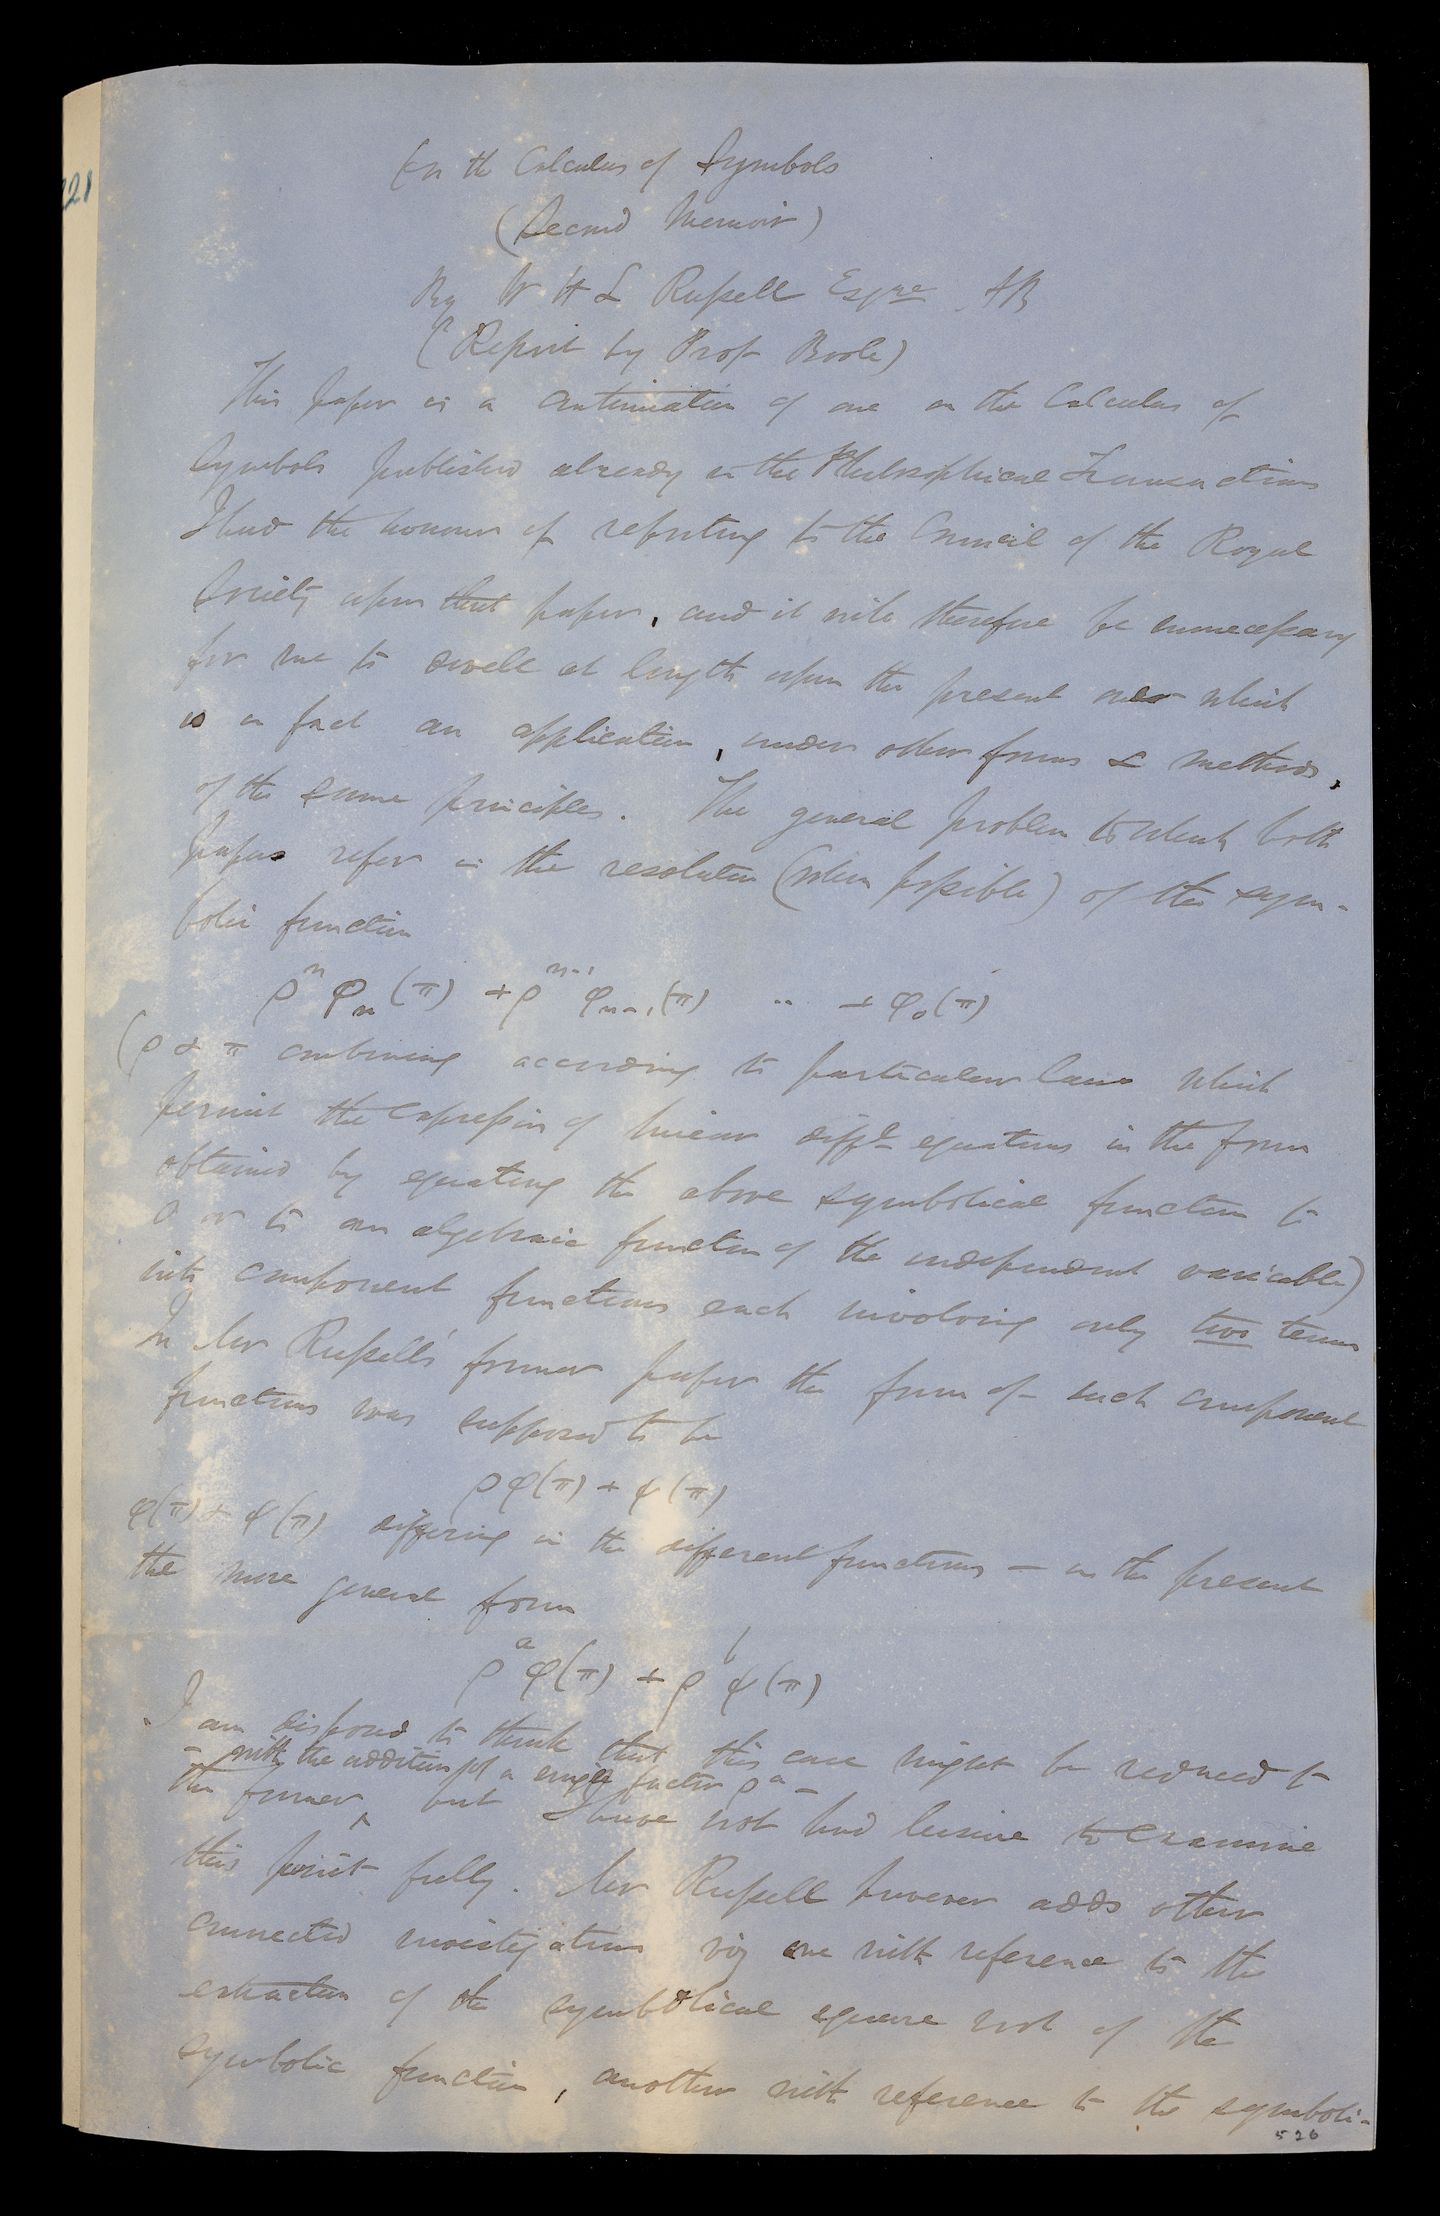 221
On the Calculus of Symbols
(Second Memoir)
By W H L Russell Esqre AB
(Report by Prof Boole)
This paper is a continuation of one on the Calculus of
Symbols published already in the Philosophical Transactions
I had the honour of reporting to the Council of the Royal
Society upon that paper, and it will therefore be unnecessary
for me to dwell at length upon the present one which
is in fact an application, under other forms & methods,
of the same principles. The general problem to which both
papers refer is the resolution (when possible) of the sym-
bolic function
ρ^n φ_n(π) + ρ^{n-1} φ_{n-1}(π) .. + φ_0(π)
(ρ & π combining according to particular laws which
permit the expression of linear diffl equations in the form
obtained by equating the above symbolical function to
0 or to an algebraic function of the independent variable)
into component functions each involving only two terms
In Mr Russell's former paper the form of such component
functions was supposed to be
ρφ(π) + ψ(π)
φ(π) & ψ(π) differing in the different functions — in the present
the more general form
ρ^a φ(π) + ρ^b ψ(π)
I am disposed to think that this case might be reduced to
– with the addition of a single factor ρ^a –
the former, but I have not had leisure to examine
this point fully. Mr Russell however adds other
connected investigations viz one with reference to the
extraction of the symbolical square root of the
symbolic function, another with reference to the symboli-
526